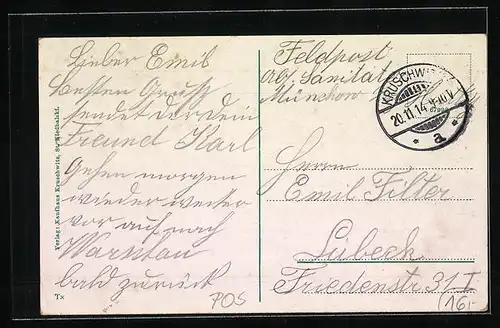 Lieber Emil
besten Gruß
sendet der dein
Freund Karl
Gehen morgen
wieder weiter
vor auf nach
Warschau
bald zurück
POS
Feldpost
Abs. Sanität
München
KRUSCHWITZ
20.11.14. 9-10V
* a *
Herrn
Emil Filter
Lübeck
Friedenstr. 31 I
16.-
Verlag: Kaufhaus Kruschwitz,
Tx